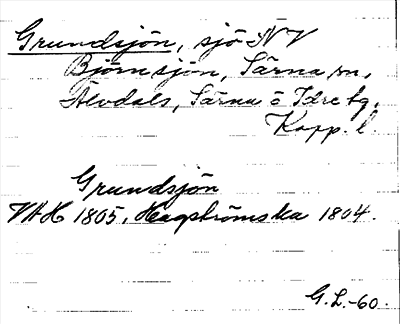 Grundsjön, sjö NV
Björnsjön, Särna sn,
Älvdals, Särna o Idre tg.
Kopp. l.
Grundsjön
VAH 1805, Hagströmska 1804.
G.L.-60.